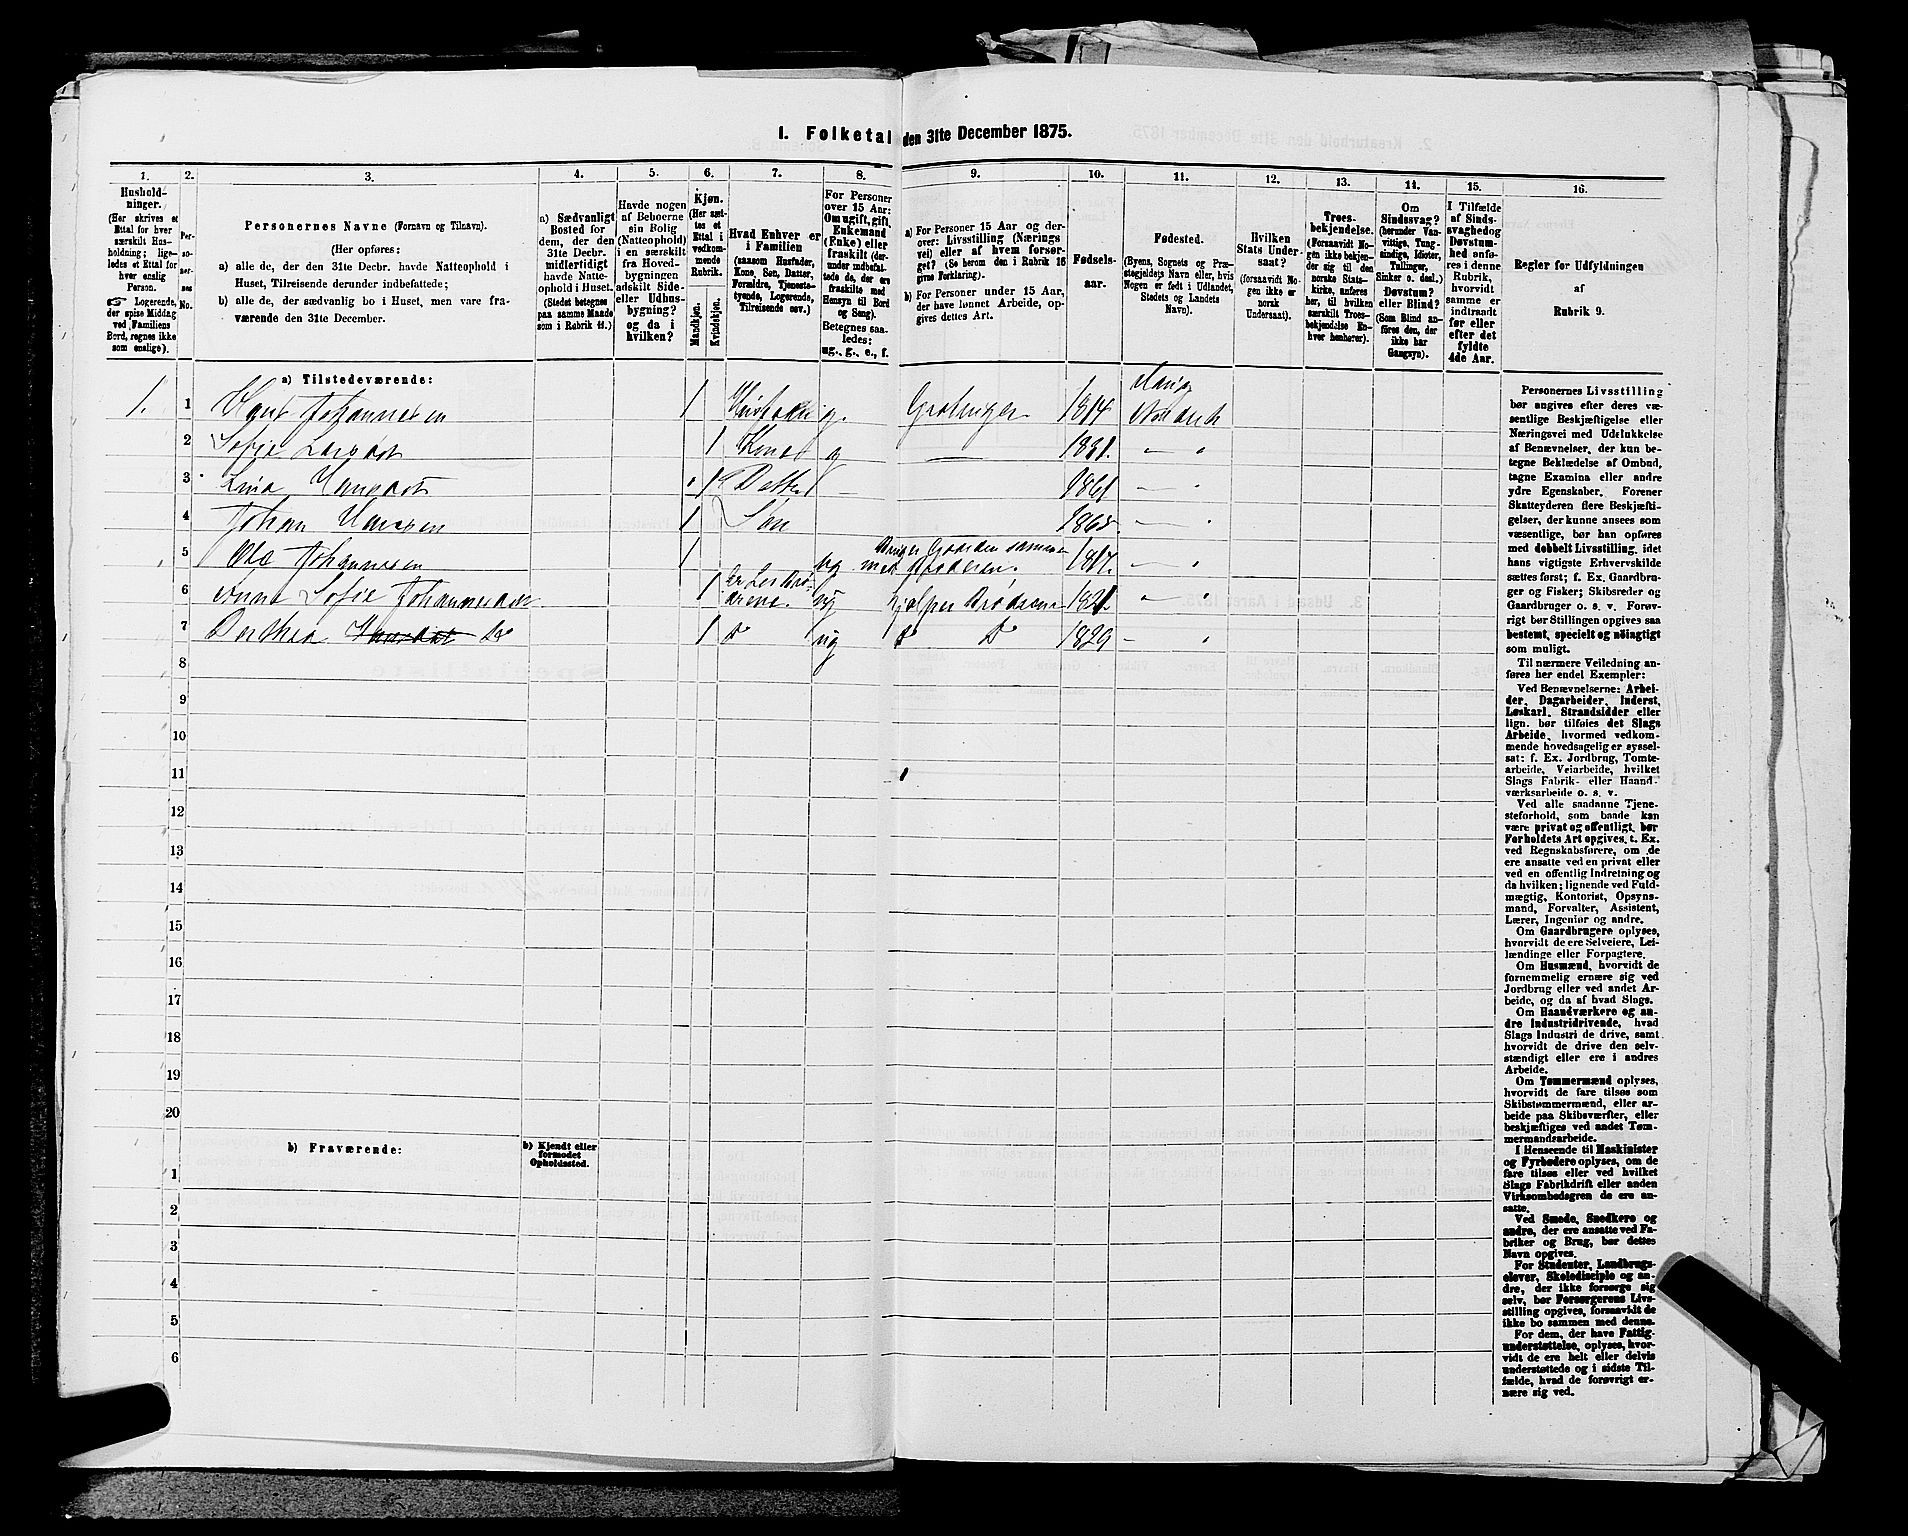 1. Folketal den 31te December 1875.
1.
Hushold-
ninger.
(Her skrives et
Ettal for hver
særskilt Hus-
holdning; lige-
ledes et Ettal for
hver enslig
Person.
Logerende,
der spise Middag
ved Familiens
Bord, regnes ikke
som enslige).
2.
Per-
so-
ner-
nes
No.
3.
Personernes Navne (Fornavn og Tilnavn).
(Her opføres:
a) alle de, der den 31te Decbr. havde Natteophold i
Huset, Tilreisende derunder indbefattede;
b) alle de, der sædvanlig bo i Huset, men vare fra-
værende den 31te December.
4.
a) Sædvanligt
Bosted for
dem, der den
31te Decbr.
midlertidigt
havde Natte-
ophold i Huset.
(Stedet betegnes
paa samme Maade
som i Rubrik 11.)
5.
Havde nogen
af Beboerne
sin Bolig
(Natteophold)
i en særskilt
fra Hoved-
bygningen
adskilt Side-
eller Udhus-
bygning?
og da i
hvilken?
6.
Kjøn.
(Her sæt-
tes et
Ettal i
vedkom-
mende
Rubrik.
Mandkjøn.
Kvindekjøn.
7.
Hvad Enhver er
i Familien
(saasom Husfader,
Kone, Søn, Datter,
Forældre, Tjeneste-
tyende, Logerende,
Tilreisende osv.)
8.
For Personer
over 15 Aar:
Om ugift, gift,
Enkemand
(Enke) eller
fraskilt (der-
under indbefat-
tede de, der ere
fraskilte med
Hensyn til Bord
og Seng).
Betegnes saa-
ledes:
ug., g., e., f.
9.
a) For Personer 15 Aar og der-
over: Livsstilling (Nærings
vei) eller af hvem forsør-
get? (Se herom den i Rubrik 16
givne Forklaring).
b) For Personer under 15 Aar,
der have lønnet Arbeide, op-
gives dettes Art.
10.
Fødsels-
aar.
11.
Fødested.
(Byens, Sognets og Præ-
stegjeldets Navn eller, hvis
Nogen er født i Udlandet,
Stedets og Landets
Navn).
12.
Hvilken
Stats Under-
saat?
(forsaavidt No-
gen ikke er
norsk
Undersaat).
13.
Troes-
bekjendelse.
(Forsaavidt No-
gen ikke bekjen-
der sig til den
norske Stats-
kirke, anføres
her, til hvilken
særskilt Troes-
bekjendelse En-
hver henhører).
14.
Om
Sindssvag?
(herunder Van-
vittige, Tung-
sindige, Idioter,
Tullinger,
Sinker o. desl.)
Døvstum?
eller Blind?
(Som Blind an-
føres den, der
ikke har
Gangsyn).
15.
I Tilfælde
af Sinds-
svaghed og
Døvstum-
hed anfø-
res i denne
Rubrik,
hvorvidt
samme er
indtraadt
før eller
efter det
fyldte
4de Aar.
16.
Regler for Udfyldningen
af
Rubrik 9.
a) Tilstedeværende:
1. 1 Hans Johannesen 1 Husfader g. Gaardbruger 1814
2 Sofie Larsdat 1 Kone g — 1831. — "
3 Lina Hansdat 1 Datter 1861 — "
4 Johan Hansen 1 Søn 1865 — "
5 Ole Johannesen 1 ug Bruger Gaarden sammen
med Broderen. 1817. — "
6 Anna Sofie Johannesdat 1 ug hjelper Brødrene 1821. " "
7 Dorthea Hansdat Do 1 Do ug Do Do 1829 — "
8
9
10
11
12
13
14
15
16
17
18
19
20
b) Fraværende:
b) Kjendt eller
formodet
Opholdssted.
1
2
3
4
5
6
Personernes Livsstilling
bør angives efter deres væ-
sentlige Beskjæftigelse eller
Næringsvei med Udelukkelse
af Benævnelser, der kun be-
tegne Beklædelse af Ombud,
tagne Examina eller andre
ydre Egenskaber. Forener
Skatteyderen flere Beskjæfti-
gelser, der kunne ansees som
væsentlige, bør han opføres
med dobbelt Livsstilling, idet
hans vigtigste Erhvervskilde
sættes først; f. Ex. Gaardbru-
ger og Fisker; Skibsreder og
Gaardbruger o. s. v. Forøv-
rigt bør Stillingen opgives saa
bestemt, specielt og nøiagtigt
som muligt.
Til nærmere Veiledning an-
føres her endel Exempler:
Ved Benævnelserne: Arbei-
der, Dagarbeider, Inderst,
Løskarl, Strandsidder eller
lign. bør tilføies det Slags
Arbeide, hvormed vedkom-
mende hovedsagelig er syssel-
sat: f. Ex. Jordbrug, Tomte-
arbeide, Veiarbeide, hvilket
Slags Fabrik- eller Haand-
værksarbeide o. s. v.
Ved alle saadanne Tjene-
steforhold, som baade kan
være privat og offentligt, bør
Forholdets Art opgives, t. Ex.
ved Regnskabsførere, om de
ere ansatte ved en privat eller
ved en offentlig Indretning og
da hvilken; lignende ved Fuld-
mægtig, Kontorist, Opsyns-
mand, Forvalter, Assistent,
Lærer, Ingeniør og andre.
Om Gaardbrugere oplyses,
hvorvidt de ere Selveiere, Lei-
lændinge eller Forpagtere.
Om Husmænd, hvorvidt de
fornemmelig ernære sig ved
Jordbrug eller ved andet Ar-
beide, og da af hvad Slags.
Om Haandværkere og an-
dre Industridrivende, hvad
Slags Industri de drive, samt
hvorvidt de drive den selv-
stændigt eller ere i andres
Arbeide.
Om Tømmermænd oplyses,
hvorvidt de fare tilsøs som
Skibstømmermænd, eller ar-
beide paa Skibsværfter, eller
beskjæftiges ved andet Tøm-
mermandsarbeide.
I Henseende til Maskinister
og Fyrbødere oplyses, om de
fare tilsøs eller ved hvilket
Slags Fabrikdrift eller anden
Virksomhedsgren de ere an-
satte.
Ved Smede, Snedkere og
andre, der ere ansatte ved Fa-
briker og Brug, bør dettes
Navn opgives.
For Studenter, Landbrugs-
elever, Skoledisciple og an-
dre, der ikke forsørge sig
selv, bør Forsørgerens Livs-
stilling opgives, forsaavidt de
ikke bo sammen med denne.
For dem, der have Fattig-
understøttelse, oplyses, hvor-
vidt de ere helt eller delvis
understøttede og i sidste Til-
fælde, hvad de forøvrigt er-
nære sig ved.